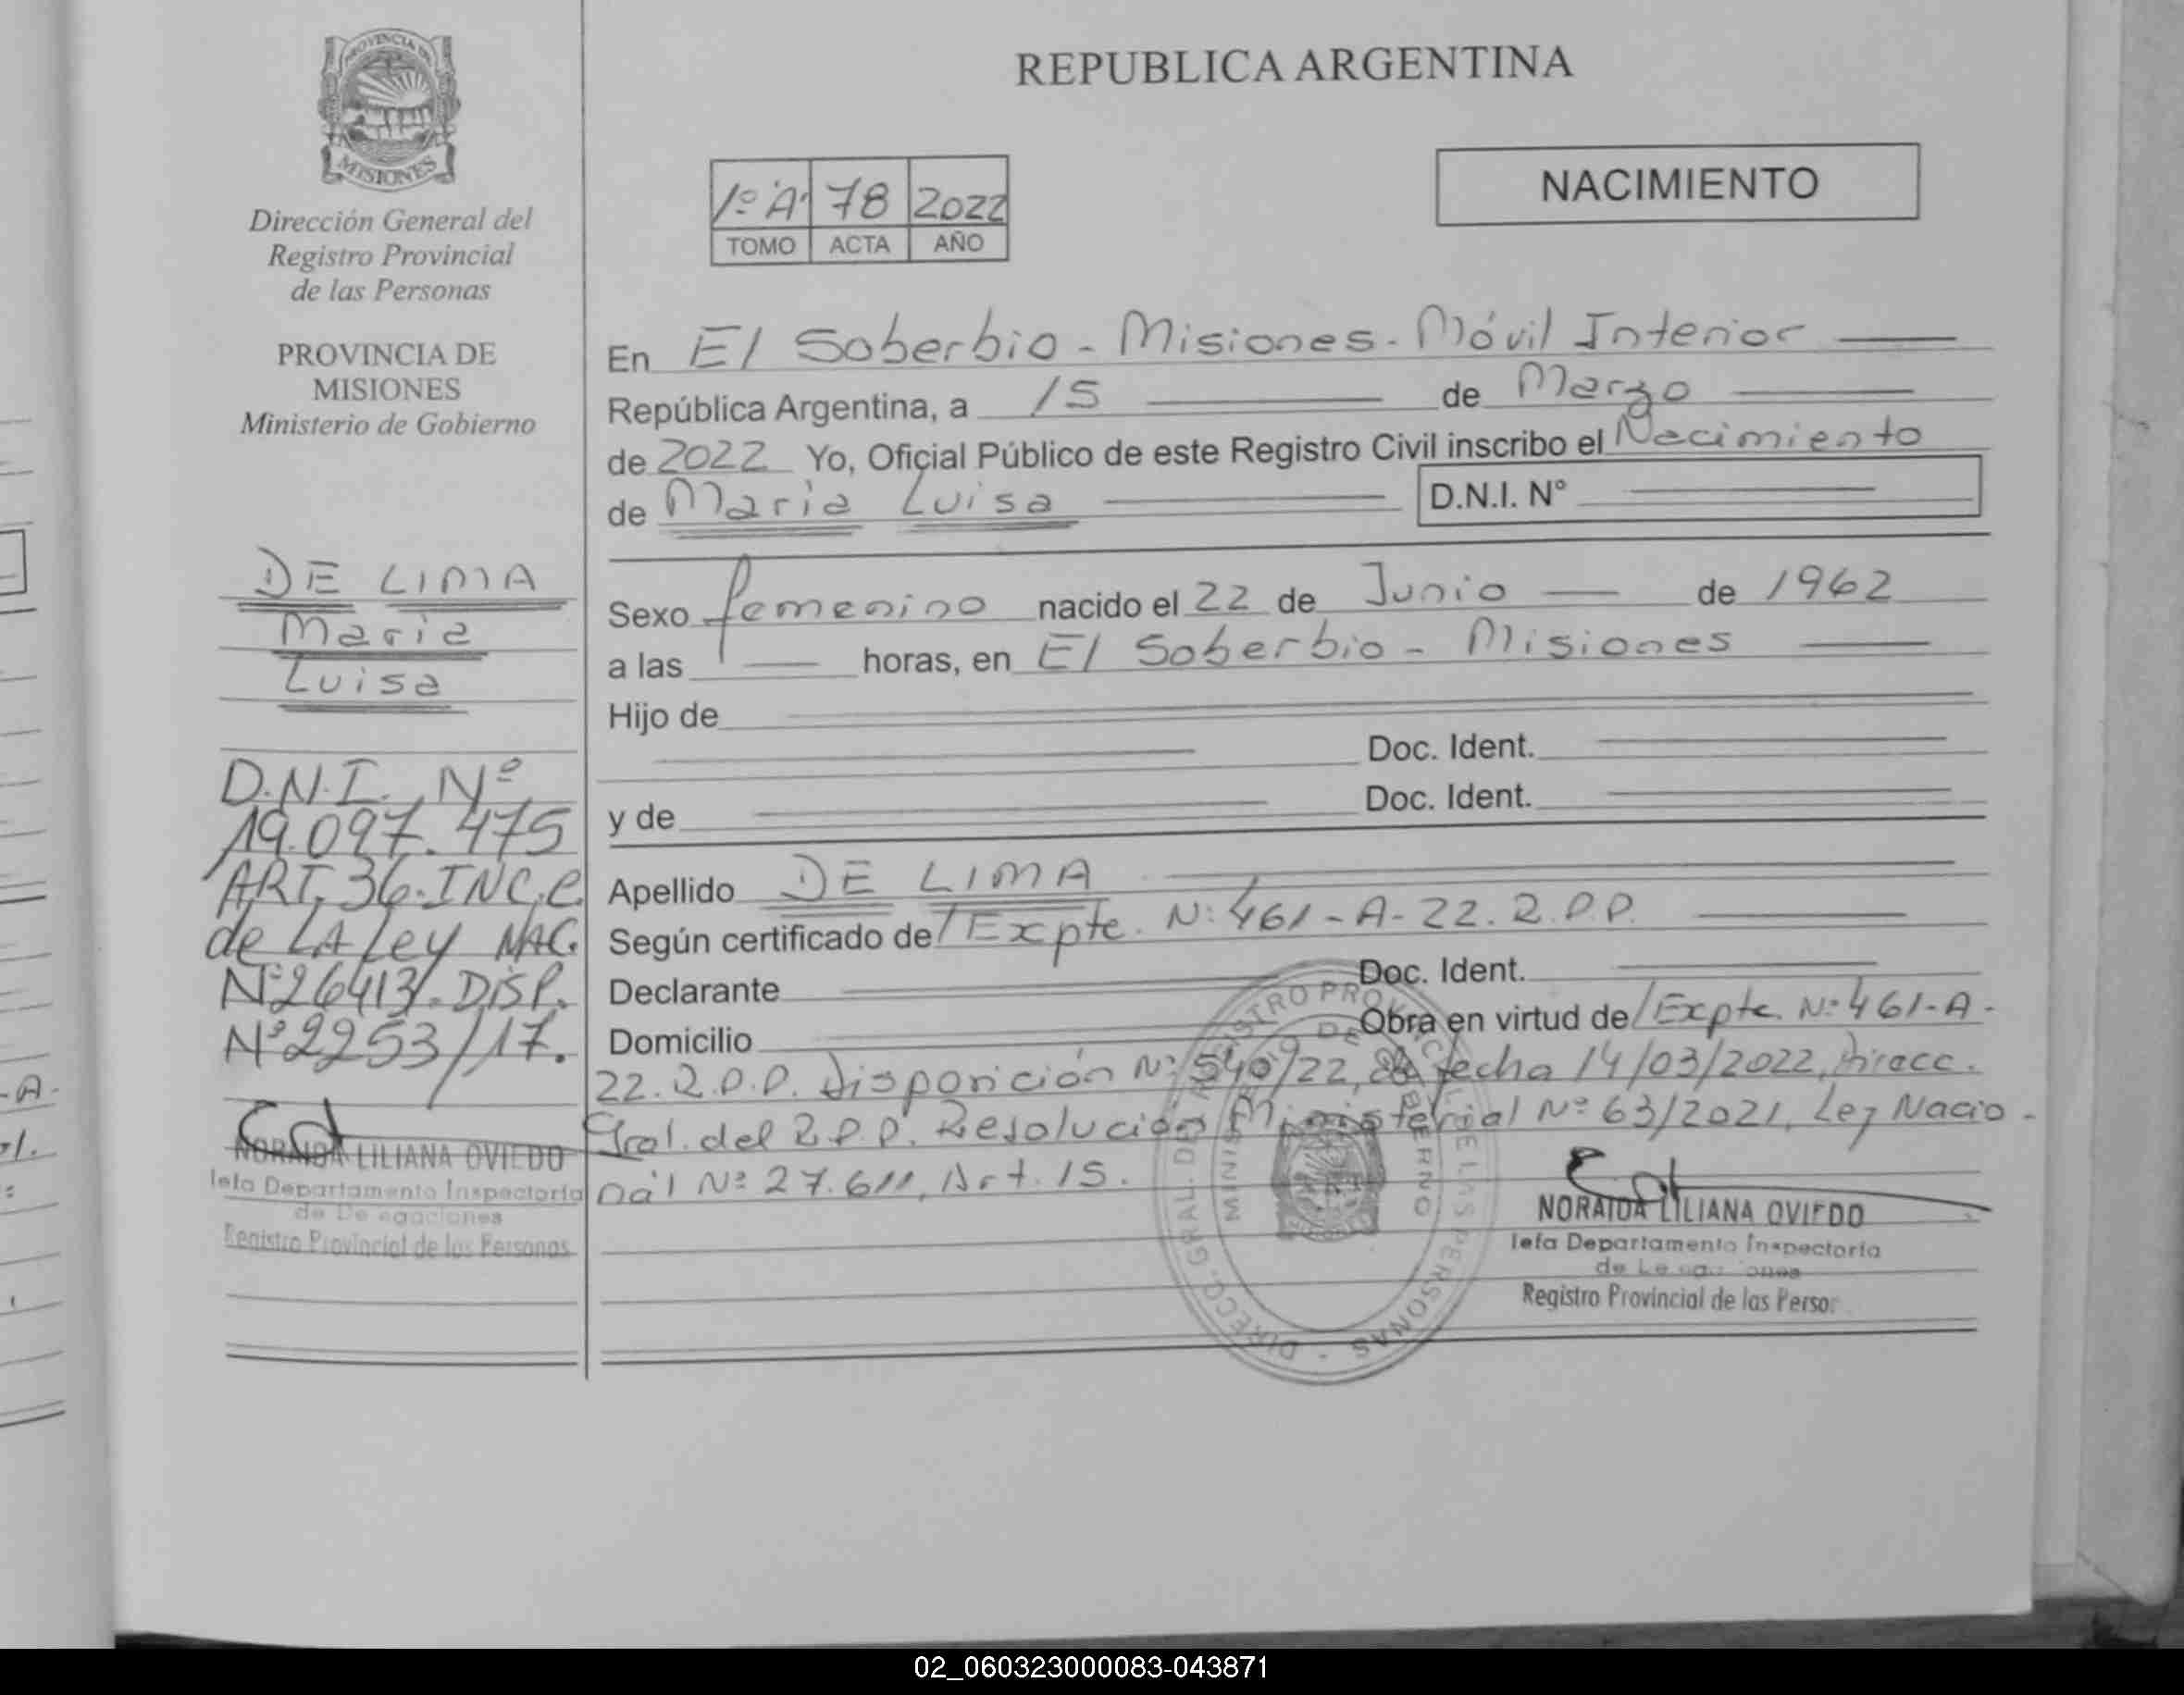 PROVINCIA DE
MISIONES
Dirección General del
Registro Provincial
de las Personas
PROVINCIA DE
MISIONES
Ministerio de Gobierno
DE LIMA
Maria
Luisa
D.N.I. Nº
19.097.475
ART. 36. INC. C
de LA Ley NAC.
Nº 26413. DISP.
Nº 2253/17.
NORAIDA LILIANA OVIEDO
Jefa Departamento Inspectoria
de De egaciones
Registro Provincial de las Personas
REPUBLICA ARGENTINA
1º "A" 78 2022
TOMO ACTA AÑO
NACIMIENTO
En El Soberbio - Misiones - Móvil Interior
República Argentina, a 15 de Marzo
de 2022 Yo, Oficial Público de este Registro Civil inscribo el Nacimiento
de Maria Luisa D.N.I. Nº
Sexo femenino nacido el 22 de Junio de 1962
a las horas, en El Soberbio - Misiones
Hijo de
Doc. Ident.
y de Doc. Ident.
Apellido DE LIMA
Según certificado de/ Expte. Nº 461-A-22. R.P.P.
Declarante Doc. Ident.
Domicilio Obra en virtud de/ Expte. Nº 461-A-
22. R.P.P. Disposición Nº 540/22, de fecha 14/03/2022, Direcc.
Gral. del R.P.P. Resolución Ministerial Nº 63/2021, Ley Nacio-
nal Nº 27.611, Art. 15.
DIRECC. GRAL. DEL REGISTRO PROVINCIAL DE LAS PERSONAS -
MINISTERIO DE GOBIERNO
NORAIDA LILIANA OVIEDO
Jefa Departamento Inspectoria
Registro Provincial de las Perso
-A-
02_060323000083-043871